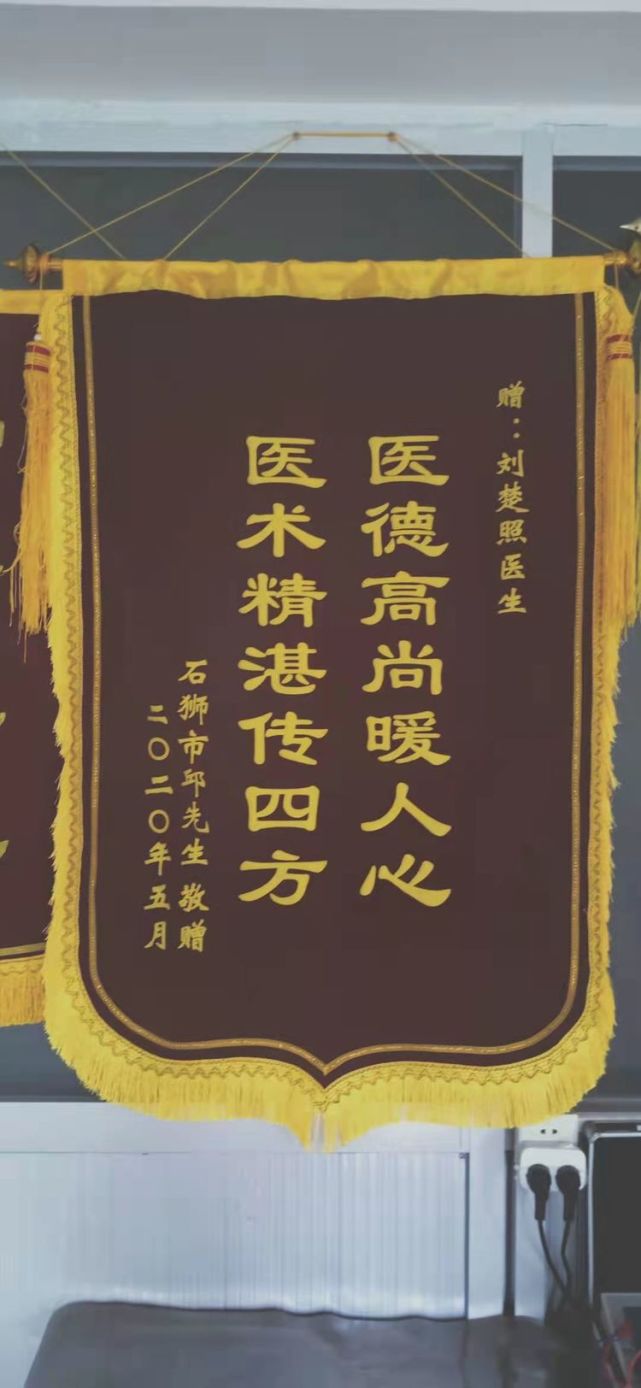 赠：刘楚照医生
医德高尚暖人心
医术精湛传四方
石狮市邱先生 敬赠
二〇二〇年五月